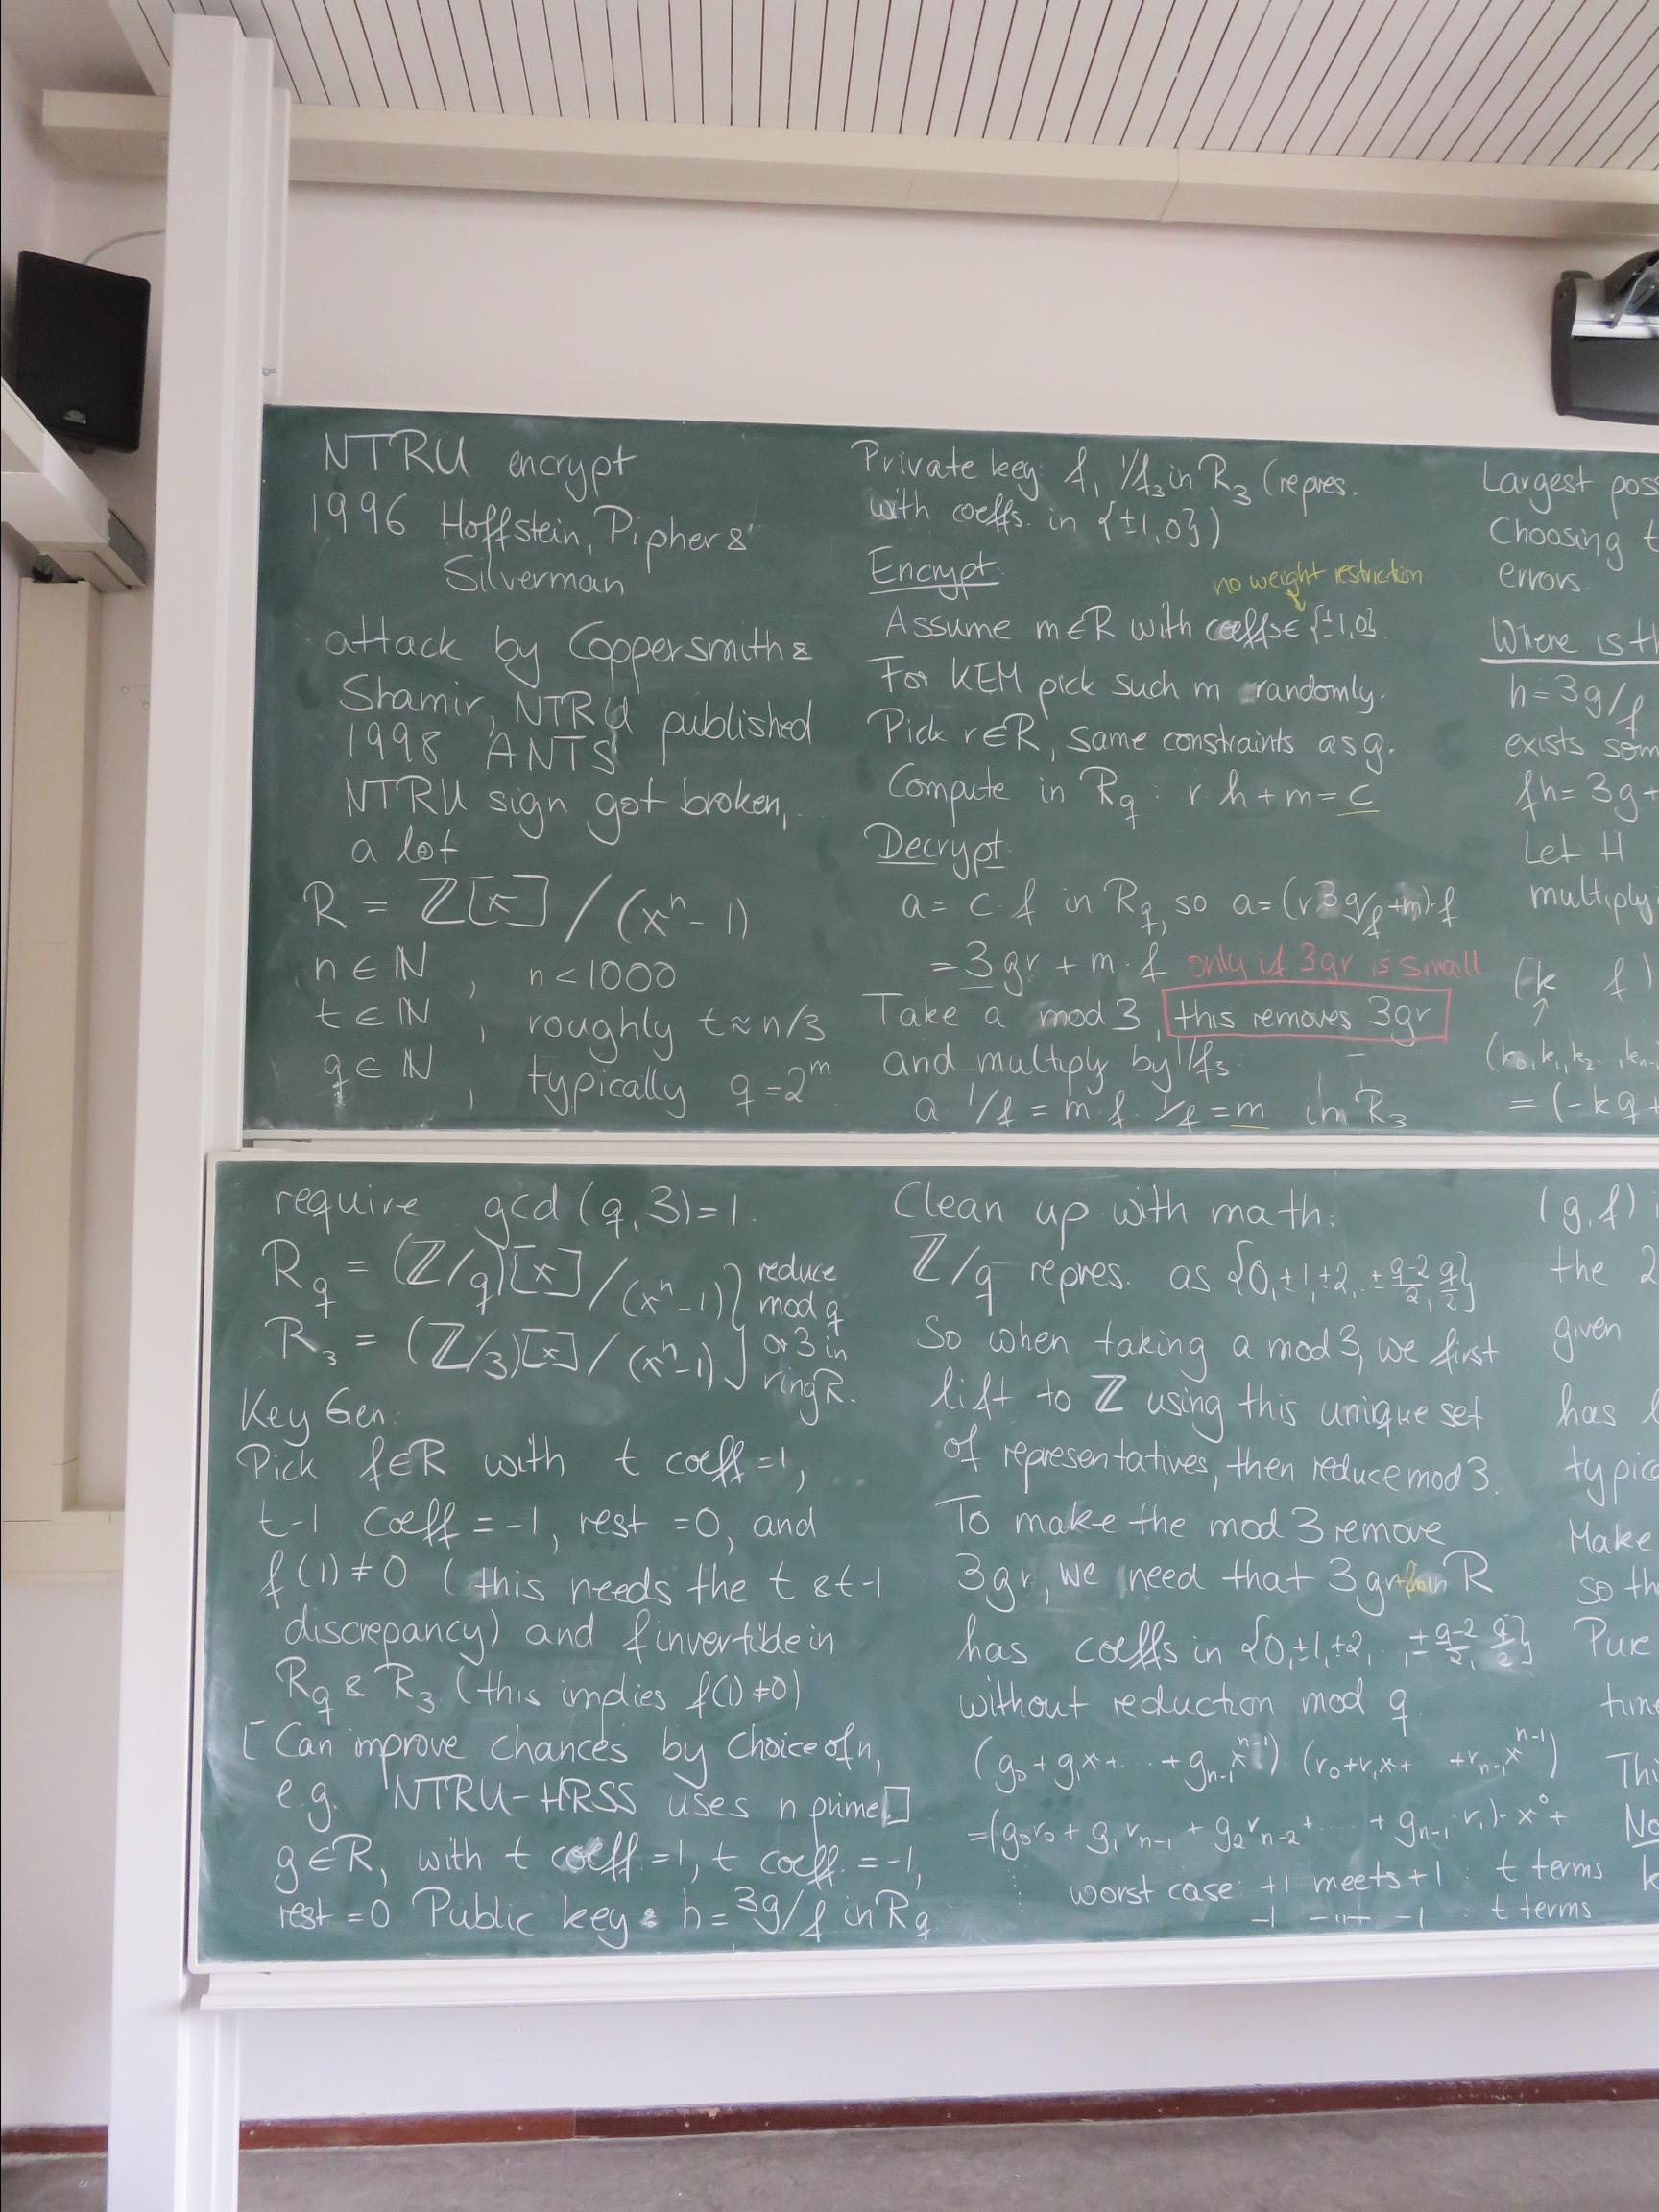 NTRU encrypt
1996 Hoffstein, Pipher &
Silverman
attack by Coppersmith &
Shamir, NTRU published
1998 ANTS
NTRU sign got broken,
a lot
R = ℤ[x] / (xⁿ - 1)
n ∈ ℕ , n < 1000
t ∈ ℕ , roughly t ≈ n/3
q ∈ ℕ , typically q = 2ᵐ
Private key: f, 1/f₃ in R₃ (repres.
with coeffs. in {±1, 0})
Encrypt:
no weight restriction
Assume m ∈ R with coeffs ∈ {±1, 0}
For KEM pick such m randomly.
Pick r ∈ R, same constraints as g.
Compute in R_q : r h + m = c
Decrypt:
a = c · f in R_q, so a = (r 3g/f + m) · f
= 3gr + m · f only if 3gr is small
Take a mod 3, this removes 3gr
and multiply by 1/f₃.
a 1/f = m f · 1/f = m in R₃
Largest poss
Choosing t
errors.
Where is th
h = 3g/f
exists som
fh = 3g +
Let H
multiply
(-k f)
(k₀, k₁, k₂ .., kₙ₋
= (-kq +
require gcd(q, 3) = 1.
R_q = (ℤ/q)[x] / (xⁿ - 1) } reduce mod q
R₃ = (ℤ/3)[x] / (xⁿ - 1) } or 3 in ring R.
Key Gen:
Pick f ∈ R with t coeff = 1,
t-1 coeff = -1, rest = 0, and
f(1) ≠ 0 (this needs the t & t-1
discrepancy) and f invertible in
R_q & R₃ (this implies f(1) ≠ 0)
[ Can improve chances by choice of n,
e.g. NTRU-HRSS uses n prime. ]
g ∈ R, with t coeff = 1, t coeff. = -1,
rest = 0 Public key: h = 3g/f in R_q
Clean up with math:
ℤ/q repres. as {0, ±1, ±2, .. ±(q-2)/2, q/2}
So when taking a mod 3, we first
lift to ℤ using this unique set
of representatives, then reduce mod 3.
To make the mod 3 remove
3gr, we need that 3gr+fm in R
has coeffs in {0, ±1, ±2, .., ±(q-2)/2, q/2}
without reduction mod q
(g₀ + g₁x + ... + gₙ₋₁xⁿ⁻¹) · (r₀ + r₁x + + rₙ₋₁xⁿ⁻¹)
= (g₀r₀ + g₁rₙ₋₁ + g₂rₙ₋₂ + .... + gₙ₋₁ r₁) · x⁰ +
worst case: +1 meets +1 : t terms
-1 -"- -1 : t terms
(g, f) i
the 2
given
has l
typica
Make
so th
Pure
time
Thi
No
k